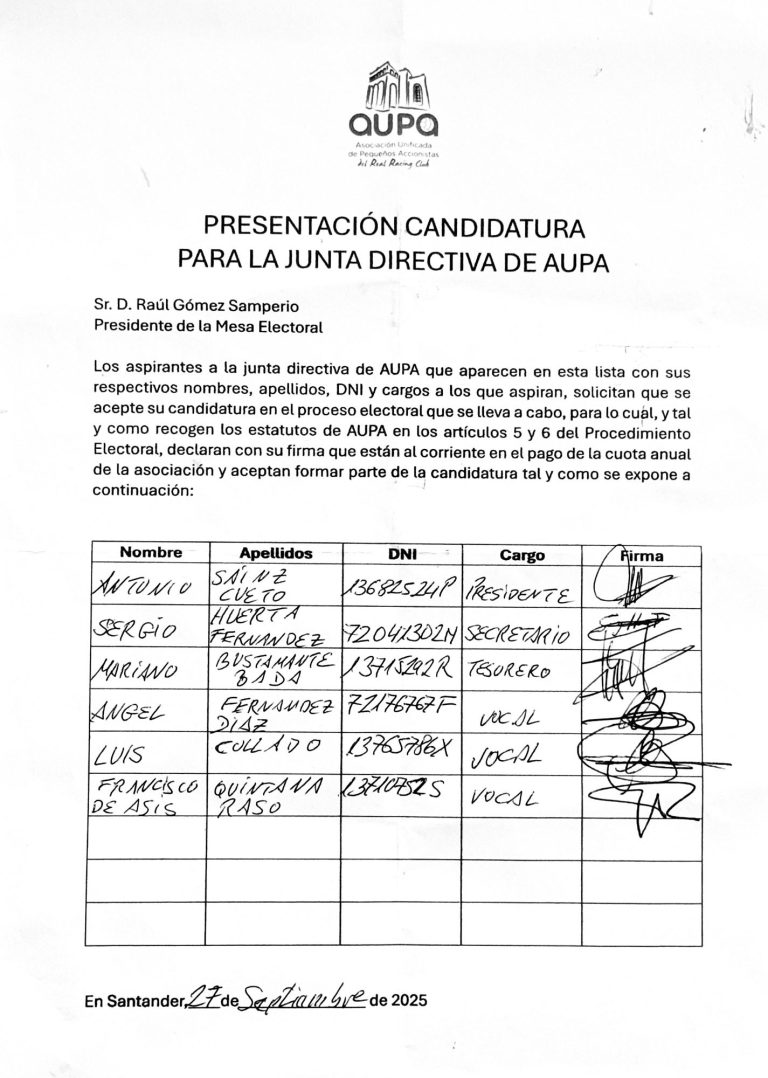 AUPA
Asociación Unificada
de Pequeños Accionistas
del Real Racing Club
PRESENTACIÓN CANDIDATURA
PARA LA JUNTA DIRECTIVA DE AUPA
Sr. D. Raúl Gómez Samperio
Presidente de la Mesa Electoral
Los aspirantes a la junta directiva de AUPA que aparecen en esta lista con sus
respectivos nombres, apellidos, DNI y cargos a los que aspiran, solicitan que se
acepte su candidatura en el proceso electoral que se lleva a cabo, para lo cual, y tal
y como recogen los estatutos de AUPA en los artículos 5 y 6 del Procedimiento
Electoral, declaran con su firma que están al corriente en el pago de la cuota anual
de la asociación y aceptan formar parte de la candidatura tal y como se expone a
continuación:
Nombre Apellidos DNI Cargo Firma
ANTONIO SÁINZ CUETO 13682524P PRESIDENTE
SERGIO HUERTA FERNANDEZ 72041302N SECRETARIO
MARIANO BUSTAMANTE BADA 13715292R TESORERO
ANGEL FERNANDEZ DIAZ 72176767F VOCAL
LUIS COLLADO 13765786X VOCAL
FRANCISCO DE ASIS QUINTANA RASO 13710752S VOCAL
En Santander, 27 de Septiembre de 2025